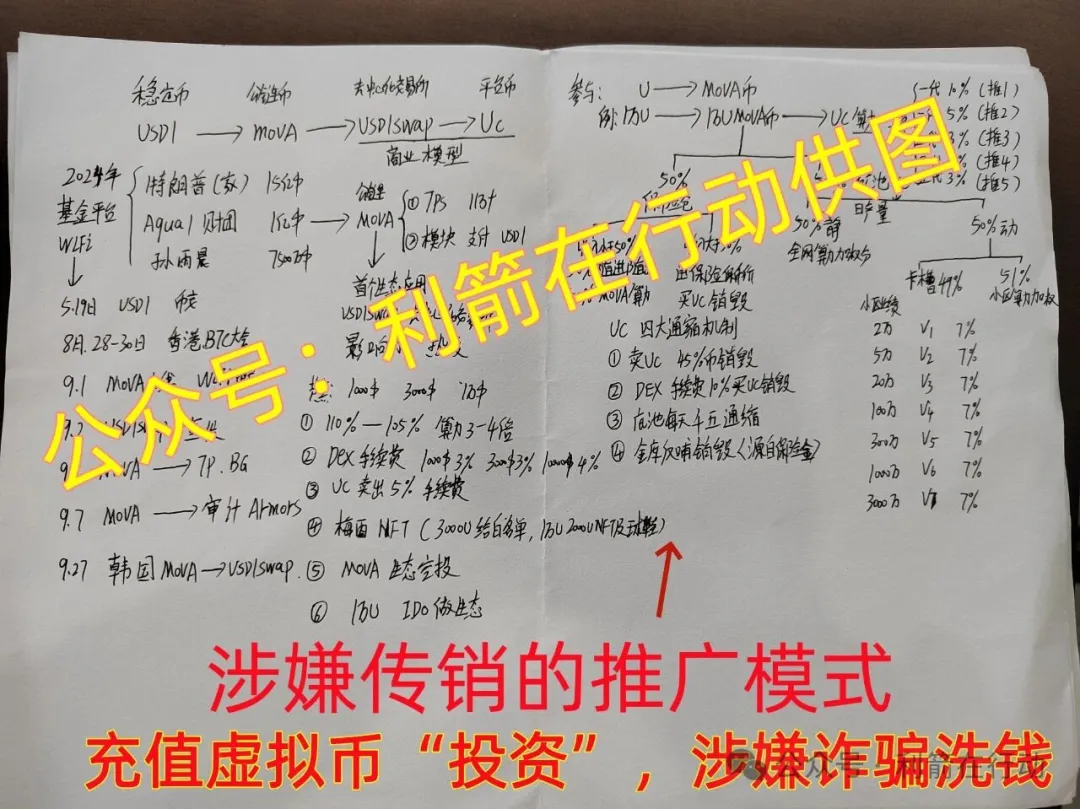 稳定币 公链币 去中心化交易所 平台币
USD1 → MOVA → USD1SWAP → UC
商业模型
2024年
基金平台
WLFi
特朗普(家) 15亿$
Aqual 财团 1亿$
孙雨晨 7500万$
公链
MOVA
① TPS 11万+
② 模块 支付 USD1
首个生态应用
5.19日 USD1 币安
8月.28-30日 香港BTC大会
影响
9.1 MOVA
1000$ 3000$ 1万$
① 110%—105% 算力3-4倍
② DEX 手续费 1000$3% 3000$3% 10000$4%
MOVA → TP.BG
③ UC 卖出5% 手续费
9.7 MOVA → 审计 Armors
④ 梅西 NFT (3000U给白名单, 1万U 2000UNFT及球鞋)
9.27 韩国 MOVA → USD1SWAP.
⑤ MOVA 生态空投
⑥ 1万U IDO做生态
参与: U → MOVA币
例:1万U → 1万U MOVA币 → UC
一代 10% (推1)
5% (推2)
3% (推3)
(推4)
3% (推5)
50%
日产量
50%静
全网算力
50%动
卡槽49%
51%
小区算力加权
进保险
MOVA算
买UC销毁
UC 四大通缩机制
① 卖UC 45%币销毁
② DEX 手续费10%买UC销毁
③ 底池每天千五通缩
④ 金库 销毁(源自保险金)
小区业绩
2万 V1 7%
5万 V2 7%
20万 V3 7%
100万 V4 7%
300万 V5 7%
1000万 V6 7%
3000万 7%
公众号：利箭在行动供图
涉嫌传销的推广模式
充值虚拟币“投资”，涉嫌诈骗洗钱
公众号·利箭在行动